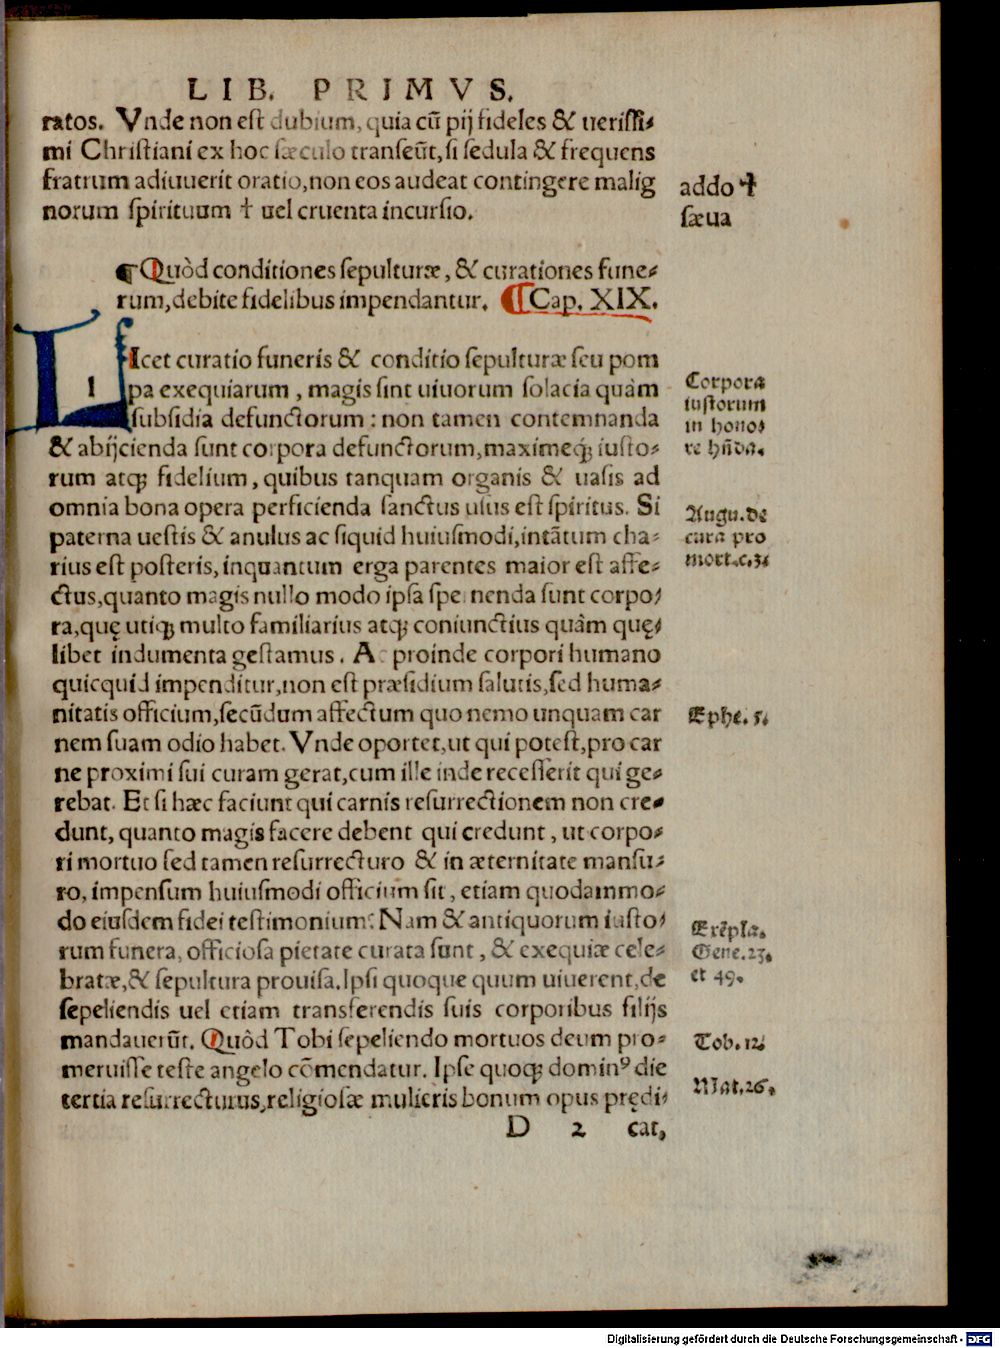 LIB. PRIMVS.
ratos. Vnde non est dubium, quia cū pij fideles & uerissi⸗
mi Christiani ex hoc sæculo transeūt, si sedula & frequens
fratrum adiuuerit oratio, non eos audeat contingere malig
norum spirituum † uel cruenta incursio.
addo †
sæua
¶ Quòd conditiones sepulturæ, & curationes fune⸗
rum, debite fidelibus impendantur. ¶ Cap. XIX.
LIcet curatio funeris & conditio sepulturæ seu pom
pa exequiarum, magis sint uiuorum solacia quàm
subsidia defunctorum: non tamen contemnanda
& abijcienda sunt corpora defunctorum, maximeq; iusto⸗
rum atq; fidelium, quibus tanquam organis & uasis ad
omnia bona opera perficienda sanctus usus est spiritus. Si
paterna uestis & anulus ac siquid huiusmodi, intātum cha⸗
rius est posteris, inquantum erga parentes maior est affe⸗
ctus, quanto magis nullo modo ipsa spernenda sunt corpo⸗
ra, quę utiq; multo familiarius atq; coniunctius quàm quę⸗
libet indumenta gestamus. Ac proinde corpori humano
quicquid impenditur, non est præsidium salutis, sed huma⸗
nitatis officium, secūdum affectum quo nemo unquam car
nem suam odio habet. Vnde oportet, ut qui potest, pro car
ne proximi sui curam gerat, cum ille inde recesserit qui ge⸗
rebat. Et si hæc faciunt qui carnis resurrectionem non cre⸗
dunt, quanto magis facere debent qui credunt, ut corpo⸗
ri mortuo sed tamen resurrecturo & in æternitate mansu⸗
ro, impensum huiusmodi officium sit, etiam quodammo⸗
do eiusdem fidei testimonium: Nam & antiquorum iusto⸗
rum funera, officiosa pietate curata sunt, & exequiæ cele⸗
bratæ, & sepultura prouisa. Ipsi quoque quum uiuerent, de
sepeliendis uel etiam transferendis suis corporibus filijs
mandauerūt. Quòd Tobi sepeliendo mortuos deum pro⸗
meruisse teste angelo cōmendatur. Ipse quoq; dominꝰ die
tertia resurrecturus, religiosæ mulieris bonum opus prędi⸗
D 2 cat,
Corpora
iustorum
in hono⸗
re hñda.
Augu. de
cura pro
mort. c. 3.
Ephe. 5.
Exēpla.
Gene. 23.
et 49.
Tob. 12.
Mat. 26.
Digitalisierung gefördert durch die Deutsche Forschungsgemeinschaft - DFG